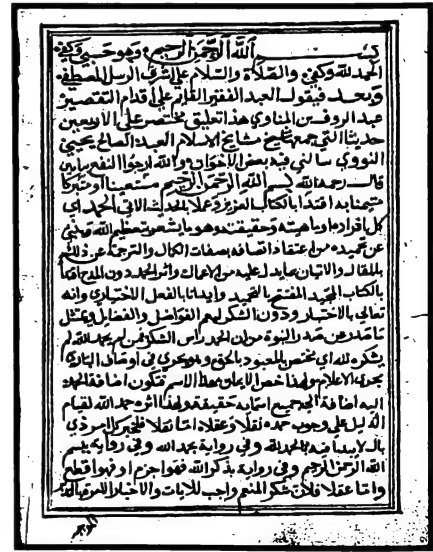 بسم الله الرحمن الرحيم وهو حسبي وكفى
الحمد لله وكفى والصلاة والسلام على اشرف الرسل المصطفى
وبعد فيقول العبد الفقير القائم على اقدام التقصير
عبد الروف بن المناوي هذا تعليق مختصر على الاربعين
حديثا التي جمعها شيخ مشايخ الاسلام العبد الصالح يحيى
النووي سالني فيه بعض الاخوان والله ارجوا النفع
قال رحمه الله بسم الله الرحمن الرحيم مستعينا او متبركا
متيمنا به اقتدا بالكتاب العزيز وعملا بالحديث الاتي الحمد اي
كل افراده او ماهيته وحقيقته وهو ما يشعر بتعظيم الله
عن تمجيده من اعتقاد اتصافه بصفات الكمال والترجمة عن ذلك
بالمقال والاتيان بما يدل عليه من الاعمال واثر الحمد دون المدح
بالكتاب المجيد المفتتح بالتحميد وايذانا بالفعل الاختياري وانه
تعالى بالاختيار ودون الشكر ليعم الفواضل والفضايل
ما صدر عن صدر النبوة من ان الحمد راس الشكر فمن لم يحمد الله لم
يشكره لله اي مختص بالمعبود بالحق وهو يجري في اوصاف الباري
مجرى الاعلام ولهذا خص الايماء بهذا الاسم فتكون اضافة الحمد
اليه اضافة الى جميع اسمايه حقيقة ولهذا اثره حمد الله لقيام
الدليل على وجوب حمده نقلا وعقلا اما نقلا فلخبر كل امر ذي
بال لا يبدأ فيه بالحمد لله وفي رواية بحمد الله وفي رواية ببسم
الله الرحمن الرحيم وفي رواية بذكر الله فهو اجزم او فهو اقطع
واما عقلا فلان شكر المنعم واجب للايات والاخبار